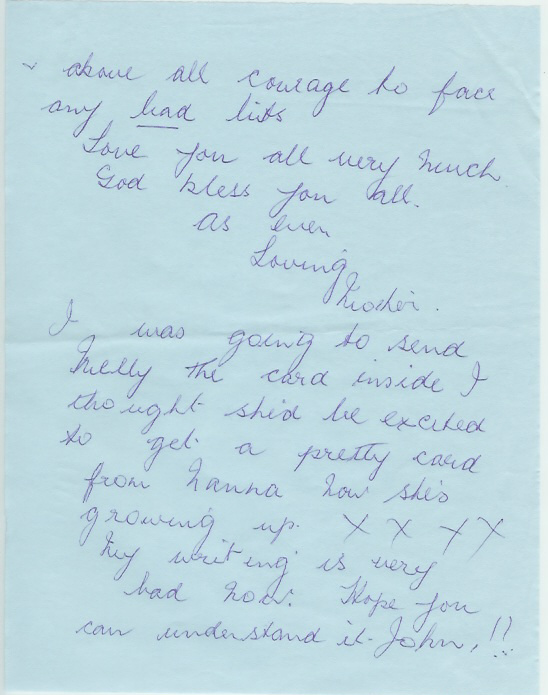 above all courage to face
any bad bits
Love you all very much.
God bless you all.
As ever
Loving
Mother.
I was going to send
Melly the card inside I
thought she'd be excited
to get a pretty card
from Nanna now she's
growing up. X X X X
My writing is very
bad now. Hope you
can understand it John, !!